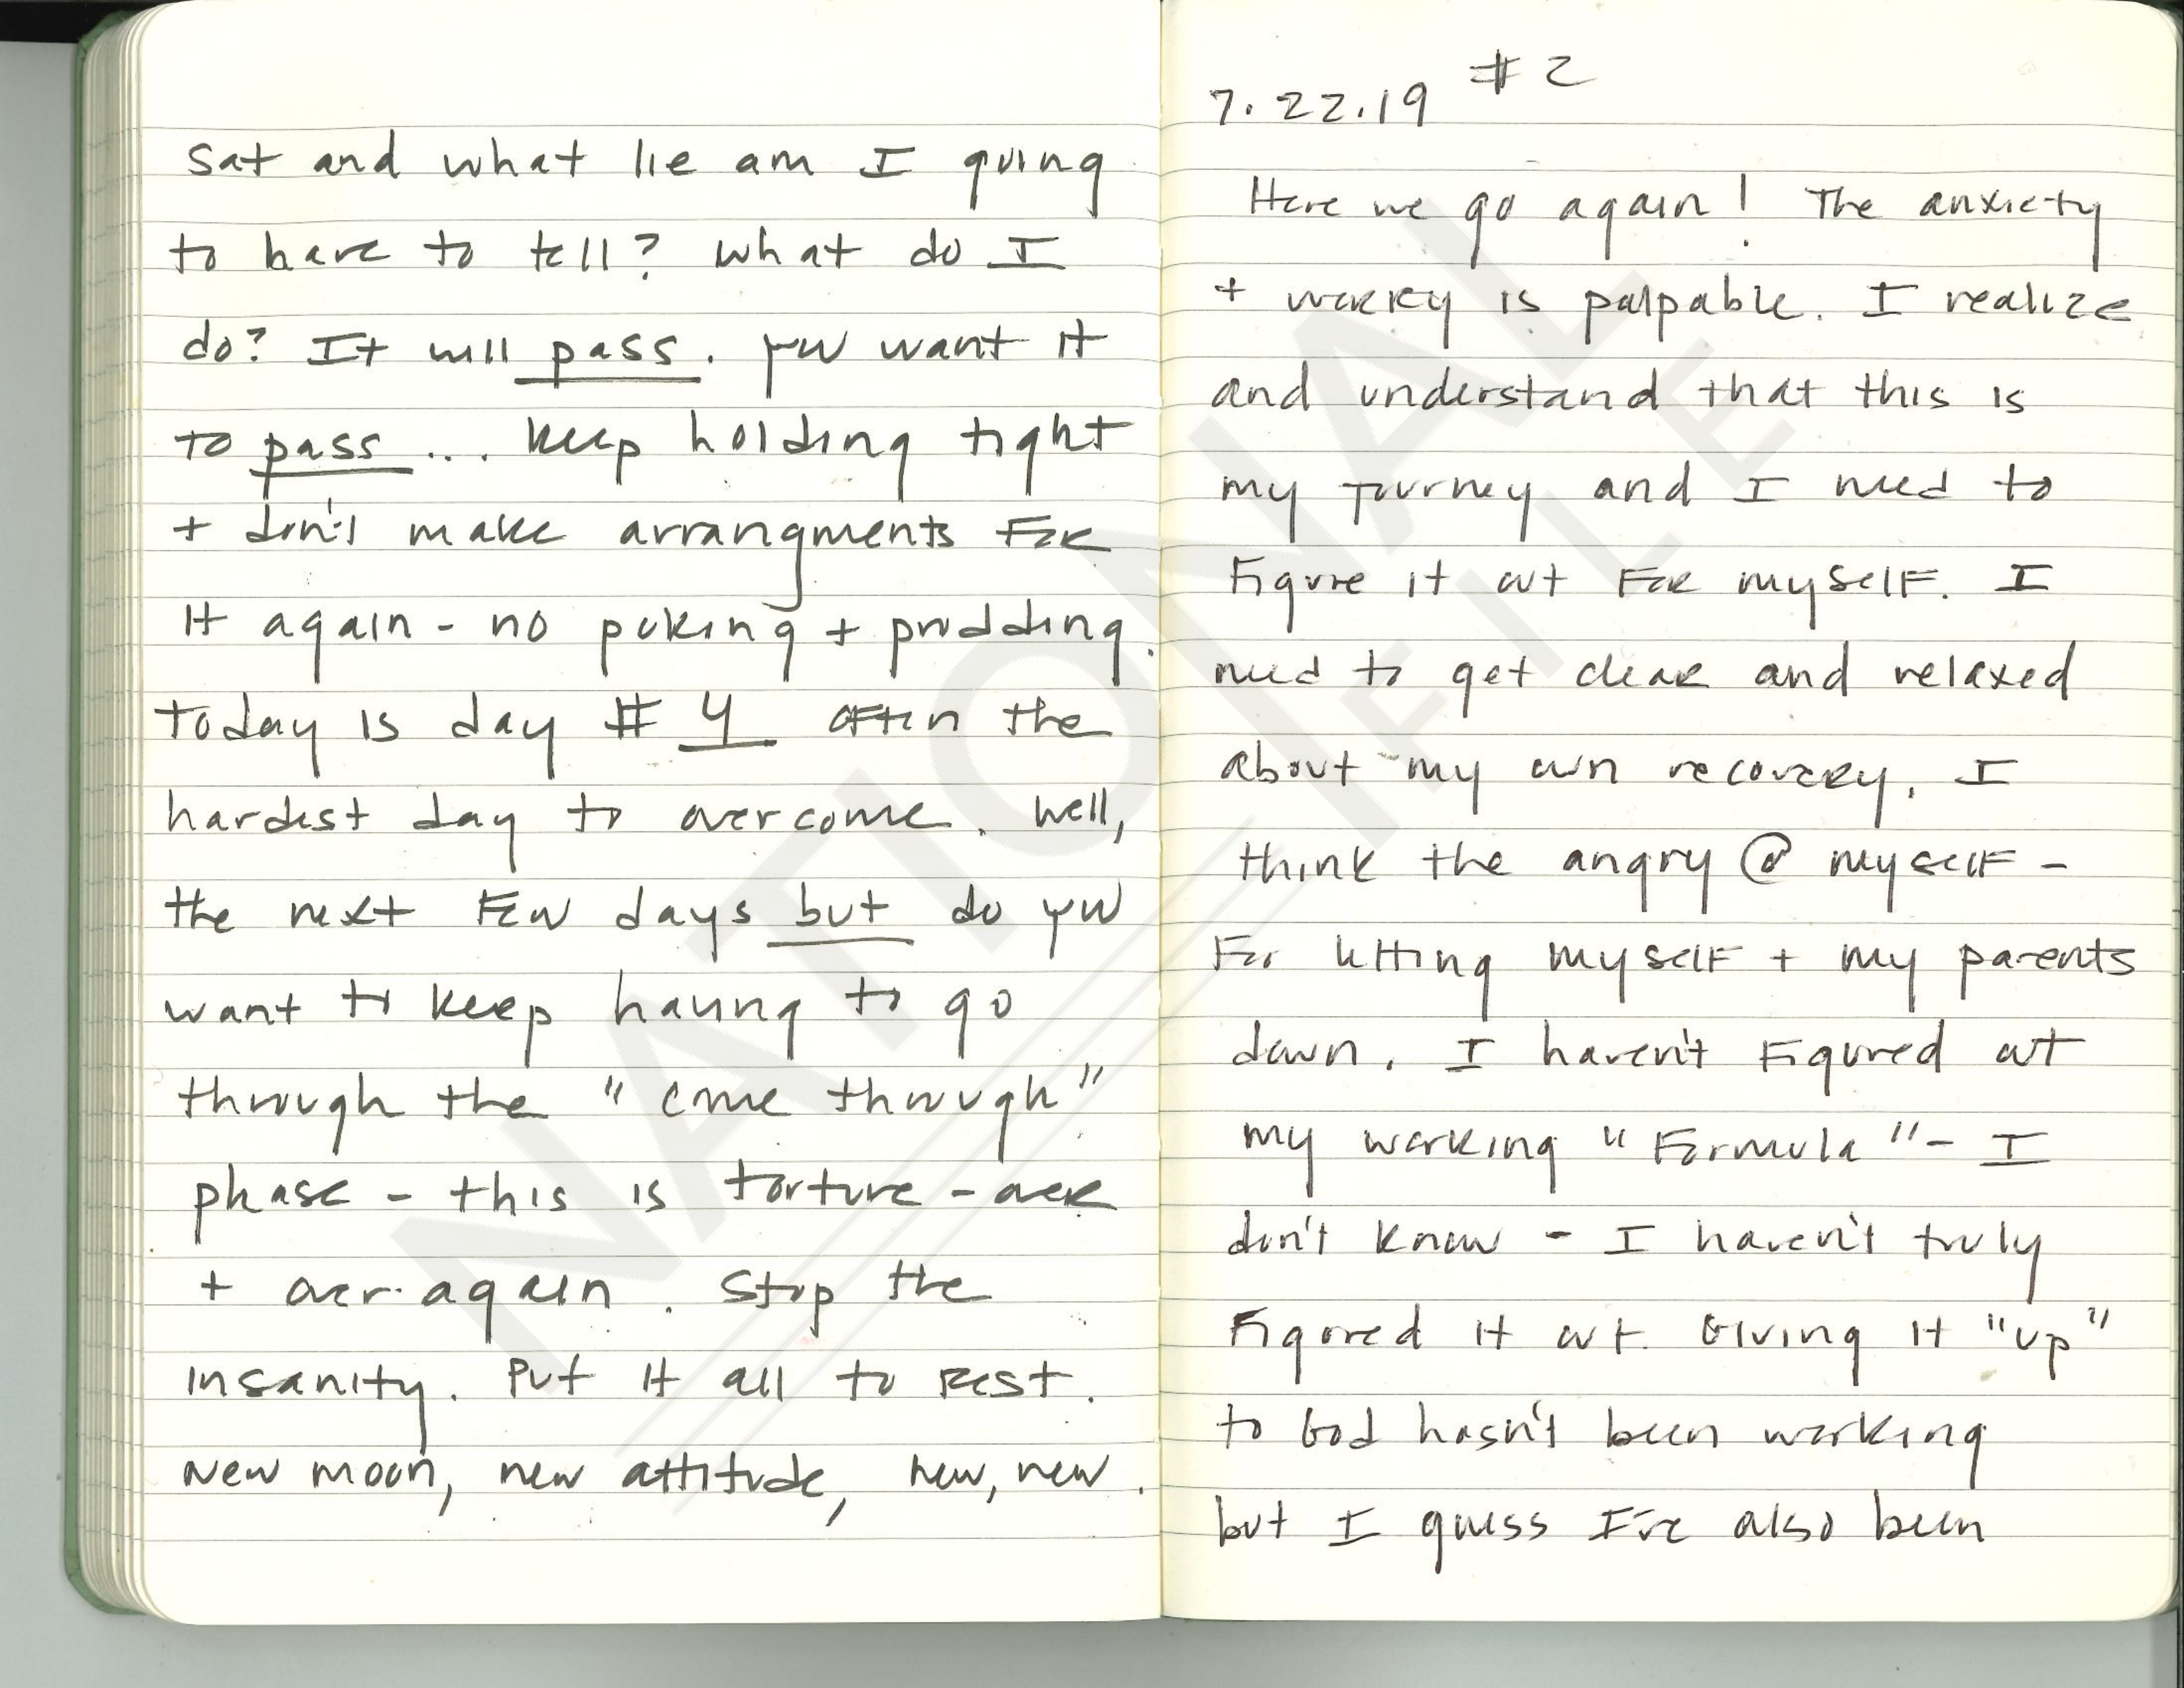 sat and what lie am I going
to have to tell? What do I
do? It will pass. you want it
to pass ... keep holding tight
+ don't make arrangments for
it again - no poking + prodding.
Today is day # 4 often the
hardest day to overcome. Well,
the next few days but do you
want to keep having to go
through the "come through"
phase - this is torture - over
+ over again. Stop the
insanity. Put it all to rest.
New moon, new attitude, new, new.
7.22.19 #2
Here we go again! The anxiety
+ worry is palpable. I realize
and understand that this is
my journey and I need to
figure it out for myself. I
need to get clear and relaxed
about my own recovery. I
think the angry @ myself -
For letting myself + my parents
down. I haven't figured out
my working "Formula" - I
don't know - I haven't truly
figured it out. Giving it "up"
to God hasn't been working
but I guess I've also been
NATIONAL
FILE